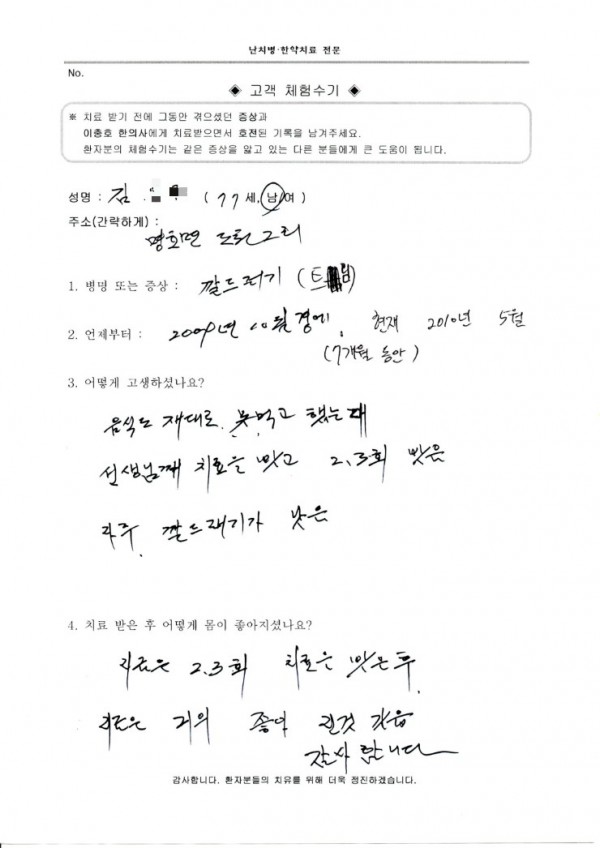 난치병·한약치료 전문
No.
◈ 고객 체험수기 ◈
※ 치료 받기 전에 그동안 겪으셨던 증상과
이총호 한의사에게 치료받으면서 호전된 기록을 남겨주세요.
환자분의 체험수기는 같은 증상을 앓고 있는 다른 분들에게 큰 도움이 됩니다.
성명 : 김 ( 77 세, 남/여 )
주소(간략하게) :
명호면 도천그리
1. 병명 또는 증상 : 깔드러기 (트림)
2. 언제부터 : 2009년 10월 경에. 현재 2010년 5월
(7개월 동안)
3. 어떻게 고생하셨나요?
음식도 재대로 못먹고 했는대
선생님께 치료을 밧고 2,3회 밧은
깔드래기가 낫은
4. 치료 받은 후 어떻게 몸이 좋아지셨나요?
2.3회 치료은 밧은후
거의 좋아 진것 갓음
감사 합니다
감사합니다. 환자분들의 치유를 위해 더욱 정진하겠습니다.